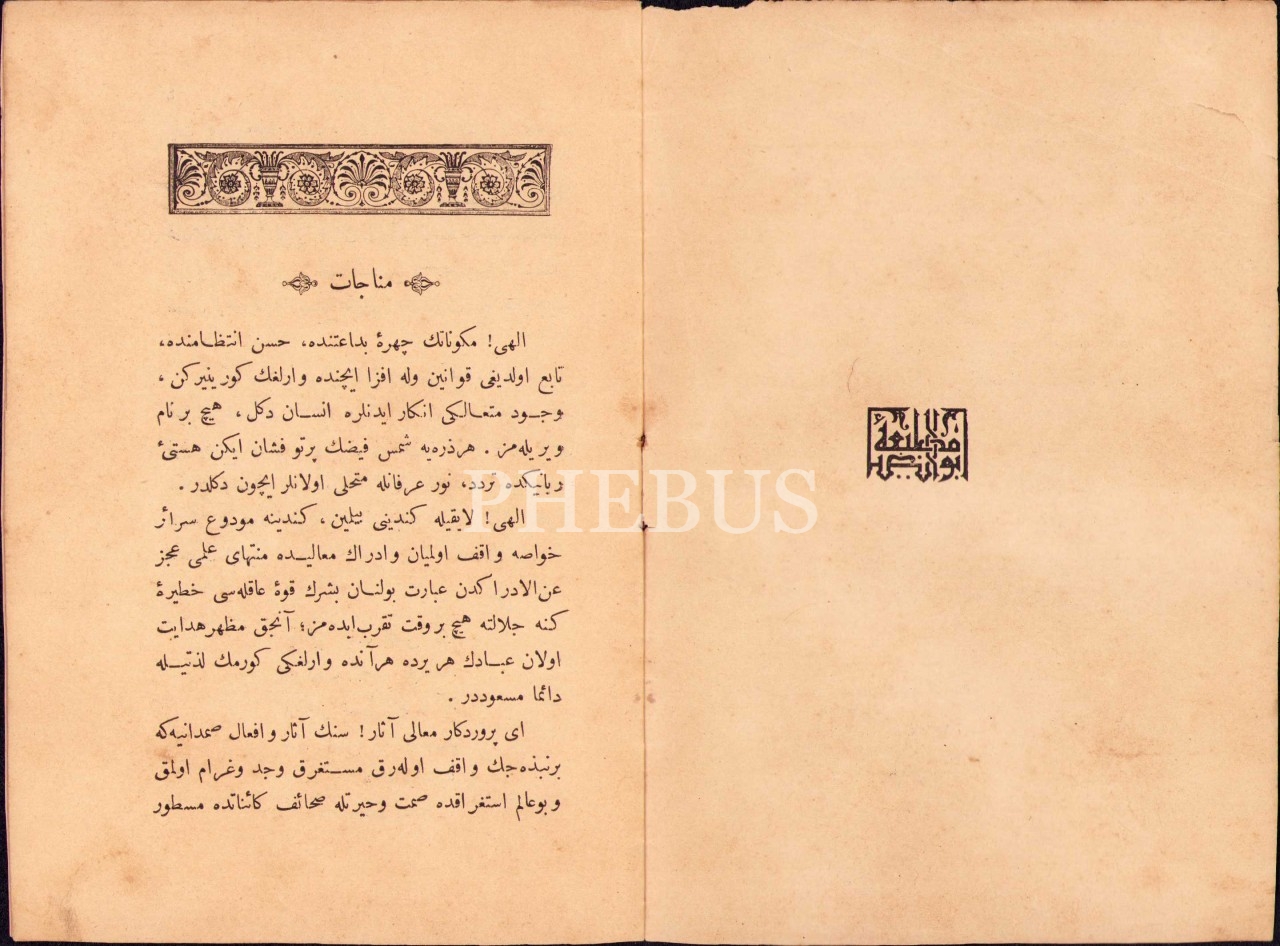 مطبعۀ
ابوالضیا
مناجات
الهی! مكوناتك چهرۀ بداعتنده، حسن انتظامنده،
تابع اولدیغی قوانین وله افزا ایچنده وارلغك كورینیركن ،
وجود متعالكی انكار ایدنلره انسان دكل، هیچ بر نام
ویریله‌مز . هرذره‌یه شمس فیضك پرتو فشان ایكن هستیٔ
ربانیكده تردد، نور عرفانله متحلی اولانلر ایچون دكلدر .
الهی! لایقیله كندینی بیلین، كندینه مودوع سرائر
خواصه واقف اولمیان وادراك معالیده منتهای علمی عجز
عن‌الادراكدن عبارت بولنان بشرك قوۀ عاقله‌سی خطیرۀ
كنه جلالته هیچ بروقت تقرب‌ایده‌مز؛ آنجق مظهرهدایت
اولان عبادك هر یرده هرآنده وارلغكی كورمك لذتیله
دائما مسعوددر .
ای پروردكار معالی آثار! سنك آثار وافعال صمدانیه‌كه
برنبذه‌جك واقف اوله‌رق مستغرق وجد وغرام اولمق
وبوعالم استغراقده صمت وحیرتله صحائف كائناتده مسطور
PHEBUS